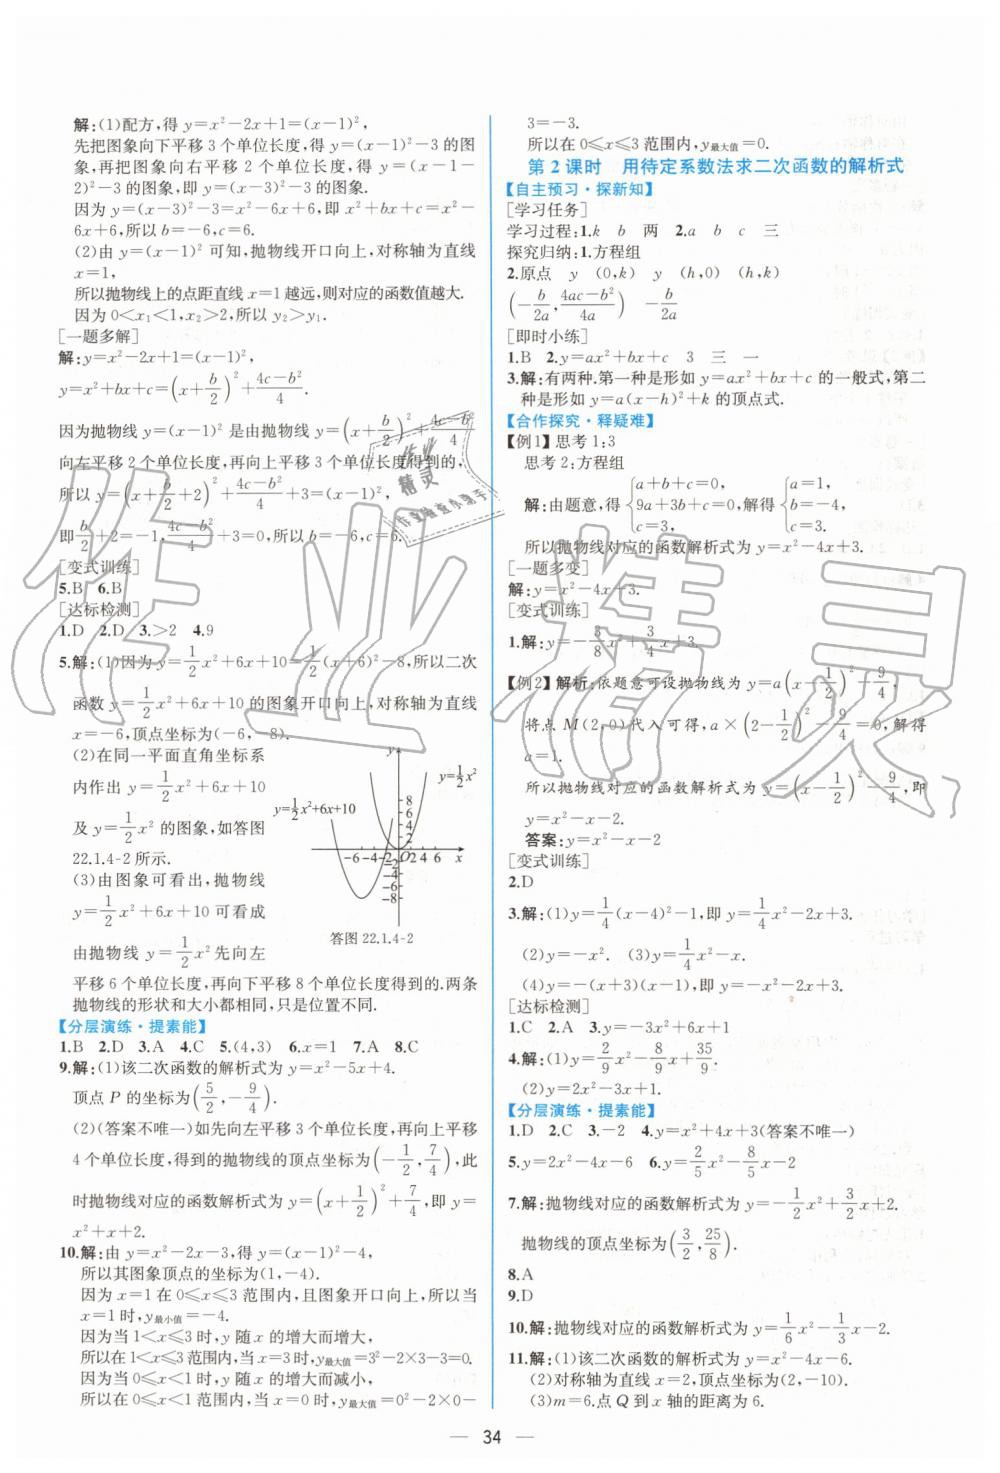 解:(1)配方,得 y=x²-2x+1=(x-1)²,
先把图象向下平移 3 个单位长度,得 y=(x-1)²-3 的图
象,再把图象向右平移 2 个单位长度,得 y=(x-1-
2)²-3 的图象,即 y=(x-3)²-3 的图象.
因为 y=(x-3)²-3=x²-6x+6,即 x²+bx+c=x²-
6x+6,所以 b=-6,c=6.
(2)由 y=(x-1)² 可知,抛物线开口向上,对称轴为直线
x=1,
所以抛物线上的点距直线 x=1 越远,则对应的函数值越大.
因为 0<x₁<1,x₂>2,所以 y₂>y₁.
[一题多解]
解:y=x²-2x+1=(x-1)²,
y=x²+bx+c=(x+b/2)²+(4c-b²)/4.
因为抛物线 y=(x-1)² 是由抛物线 y=(x+b/2)²+(4c-b²)/4
向左平移 2 个单位长度,再向上平移 3 个单位长度得到的,
所以 y=(x+b/2+2)²+(4c-b²)/4+3=(x-1)²,
即 b/2+2=-1,(4c-b²)/4+3=0,所以 b=-6,c=6.
[变式训练]
5.B 6.B
[达标检测]
1.D 2.D 3.>2 4.9
5.解:(1)因为 y=1/2x²+6x+10=1/2(x+6)²-8,所以二次
函数 y=1/2x²+6x+10 的图象开口向上,对称轴为直线
x=-6,顶点坐标为(-6,-8).
(2)在同一平面直角坐标系
内作出 y=1/2x²+6x+10
及 y=1/2x² 的图象,如答图
22.1.4-2 所示.
(3)由图象可看出,抛物线
y=1/2x²+6x+10 可看成
由抛物线 y=1/2x² 先向左
y
y=1/2x²
y=1/2x²+6x+10
8
6
4
2
-6 -4 -2 O 2 4 6 x
-2
-4
-6
-8
答图 22.1.4-2
平移 6 个单位长度,再向下平移 8 个单位长度得到的.两条
抛物线的形状和大小都相同,只是位置不同.
【分层演练·提素能】
1.B 2.D 3.A 4.C 5.(4,3) 6.x=1 7.A 8.C
9.解:(1)该二次函数的解析式为 y=x²-5x+4.
顶点 P 的坐标为(5/2,-9/4).
(2)(答案不唯一)如先向左平移 3 个单位长度,再向上平移
4 个单位长度,得到的抛物线的顶点坐标为(-1/2,7/4),此
时抛物线对应的函数解析式为 y=(x+1/2)²+7/4,即 y=
x²+x+2.
10.解:由 y=x²-2x-3,得 y=(x-1)²-4,
所以其图象顶点的坐标为(1,-4).
因为 x=1 在 0≤x≤3 范围内,且图象开口向上,所以当
x=1 时,y最小值=-4.
因为当 1<x≤3 时,y 随 x 的增大而增大,
所以在 1<x≤3 范围内,当 x=3 时,y最大值=3²-2×3-3=0.
因为当 0≤x<1 时,y 随 x 的增大而减小,
所以在 0≤x<1 范围内,当 x=0 时,y最大值=0²-2×0-
3=-3.
所以在 0≤x≤3 范围内,y最大值=0.
第 2 课时 用待定系数法求二次函数的解析式
【自主预习·探新知】
[学习任务]
学习过程:1.k b 两 2.a b c 三
探究归纳:1.方程组
2.原点 y (0,k) y (h,0) (h,k)
(-b/2a,(4ac-b²)/4a) -b/2a
[即时小练]
1.B 2.y=ax²+bx+c 3 三 一
3.解:有两种.第一种是形如 y=ax²+bx+c 的一般式,第二
种是形如 y=a(x-h)²+k 的顶点式.
【合作探究·释疑难】
【例1】思考 1:3
思考 2:方程组
解:由题意,得{a+b+c=0, 9a+3b+c=0, c=3, 解得{a=1, b=-4, c=3.
所以抛物线对应的函数解析式为 y=x²-4x+3.
[一题多变]
解:y=x²-4x+3.
[变式训练]
1.解:y=-3/8x²+3/4x+3.
【例2】解析:依题意可设抛物线为 y=a(x-1/2)²-9/4,
将点 M(2,0)代入可得,a×(2-1/2)²-9/4=0,解得
a=1.
所以抛物线对应的函数解析式为 y=(x-1/2)²-9/4,即
y=x²-x-2.
答案:y=x²-x-2
[变式训练]
2.D
3.解:(1)y=1/4(x-4)²-1,即 y=1/4x²-2x+3.
(2)y=-x². (3)y=1/4x²-x.
(4)y=-(x+2)²+3,即 y=-x²-4x-1.
[达标检测]
1.C 2.A 3.y=-3x²+6x+1
4.解:(1)y=2/9x²-8/9x+35/9.
(2)y=2x²-3x+1.
【分层演练·提素能】
1.D 2.C 3.-2 4.y=x²+4x+3(答案不唯一)
5.y=2x²-4x-6 6.y=2/5x²-8/5x-2
7.解:抛物线对应的函数解析式为 y=-1/2x²+3/2x+2.
抛物线的顶点坐标为(3/2,25/8).
8.A
9.D
10.解:抛物线对应的函数解析式为 y=1/6x²-1/3x-2.
11.解:(1)该二次函数的解析式为 y=x²-4x-6.
(2)对称轴为直线 x=2,顶点坐标为(2,-10).
(3)m=6.点 Q 到 x 轴的距离为 6.
— 34 —
作业精灵
作业精灵